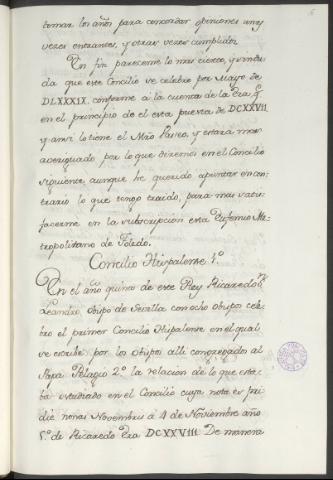 tomar los años para concordar opiniones unas
vezes entrantes, y otras vezes cumplidos.
En fin pareceme lo mas cierto, y sin du
da que este Concilio se celebro por Mayo de
DLXXXIX. conforme á la cuenta de la Era q.e
en el principio de el esta puesta de DCXXVII.
y ansi lo tiene el Mro Vaseo, y estará mas
averiguado por lo que diremos en el Concilio
siguiente, aunque he querido apuntar en con-
trario lo que tengo traido, para mas satis
facerme en la subscripcion esta Eufemio Me-
tropolitano de Toledo.
Concilio Hispalense 1.º
En el año quinto de este Rey Ricaredo
Leandro, Obispo de Sevilla con ocho Obispos cele
bro el primer Concilio Hispalense en el qual
se escribe por los Obispos alli congregados al
Papa Pelagio 2.º la relacion de lo que esta-
ba estudiado en el Concilio cuya nota es pri
die nonas Novembris á 4 de Noviembre año
5.º de Ricaredo Era DCXXVIII. De manera